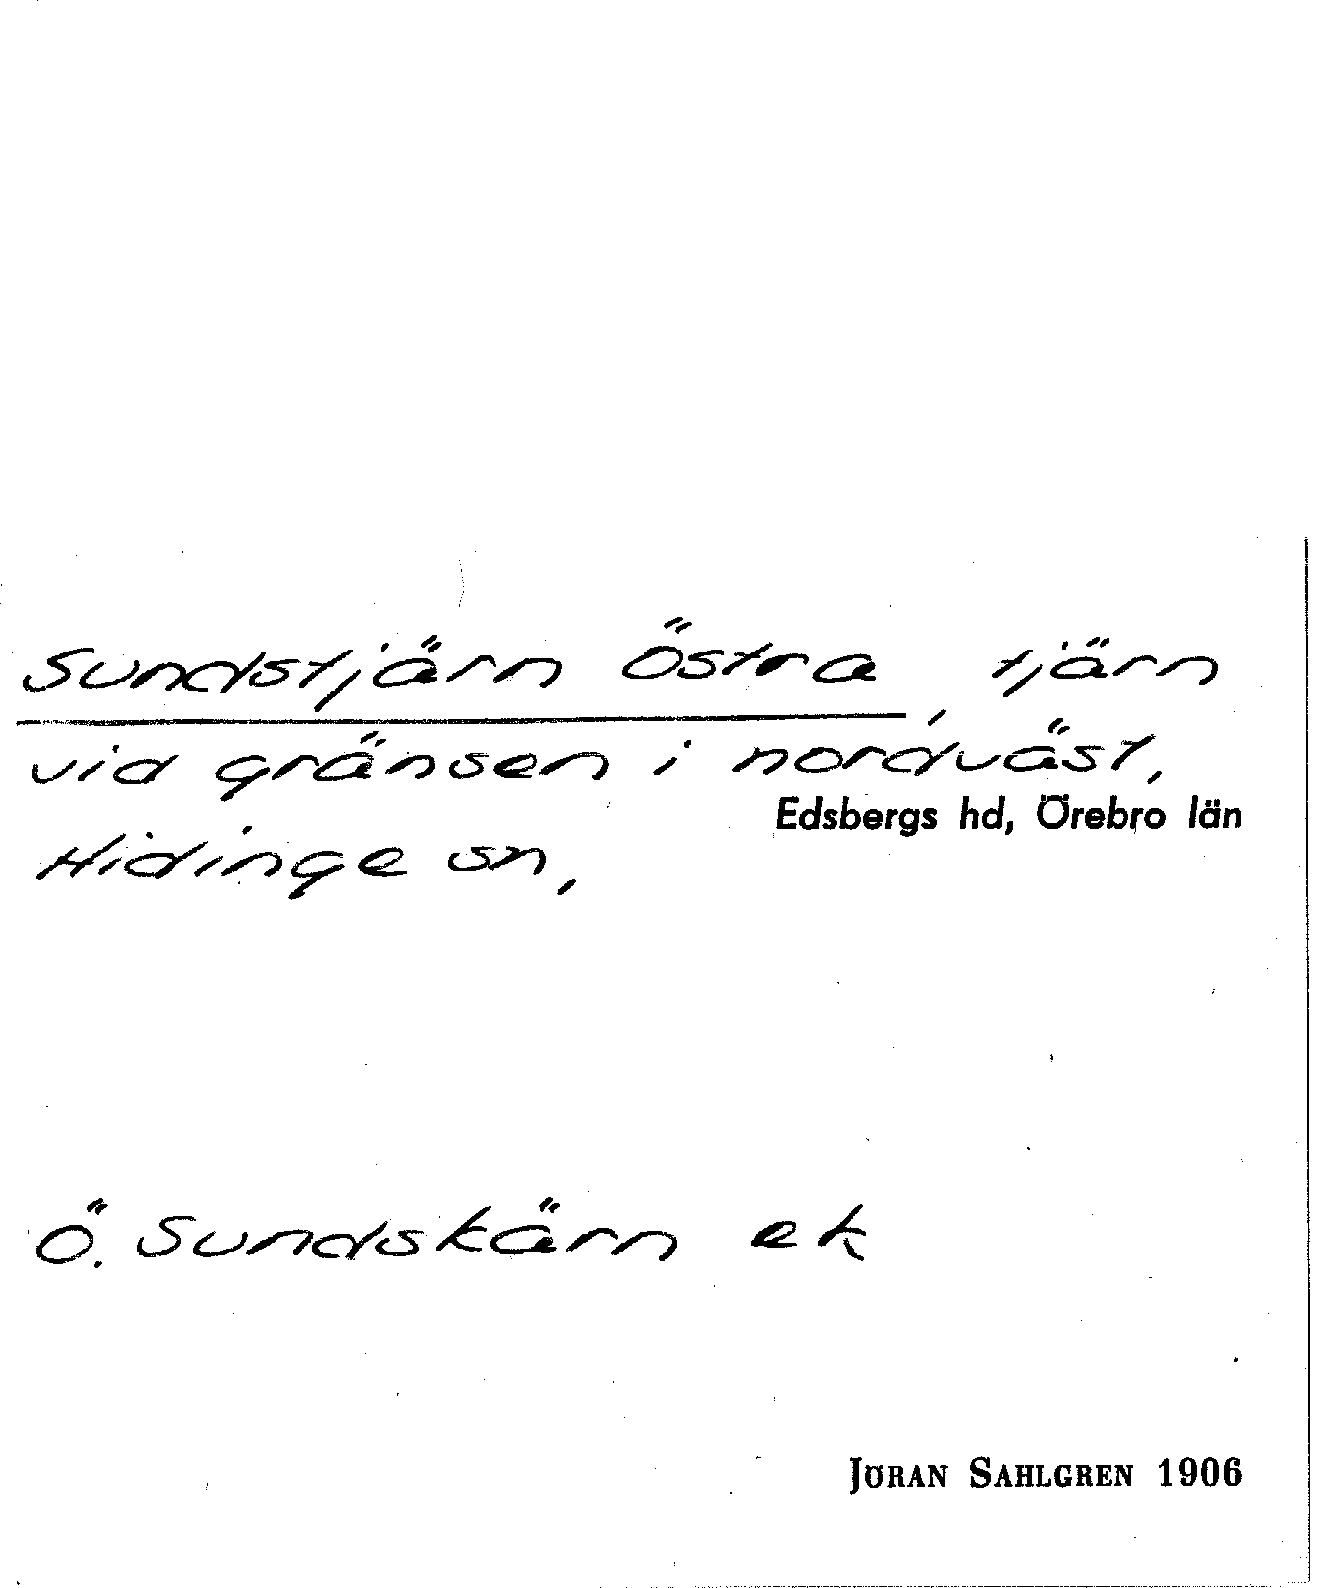 Sundstjärn Östra, tjärn
vid gränsen i nordväst,
Edsbergs hd, Örebro län
Hidinge sn,
Ö. Sundskärn ek
JÖRAN SAHLGREN 1906